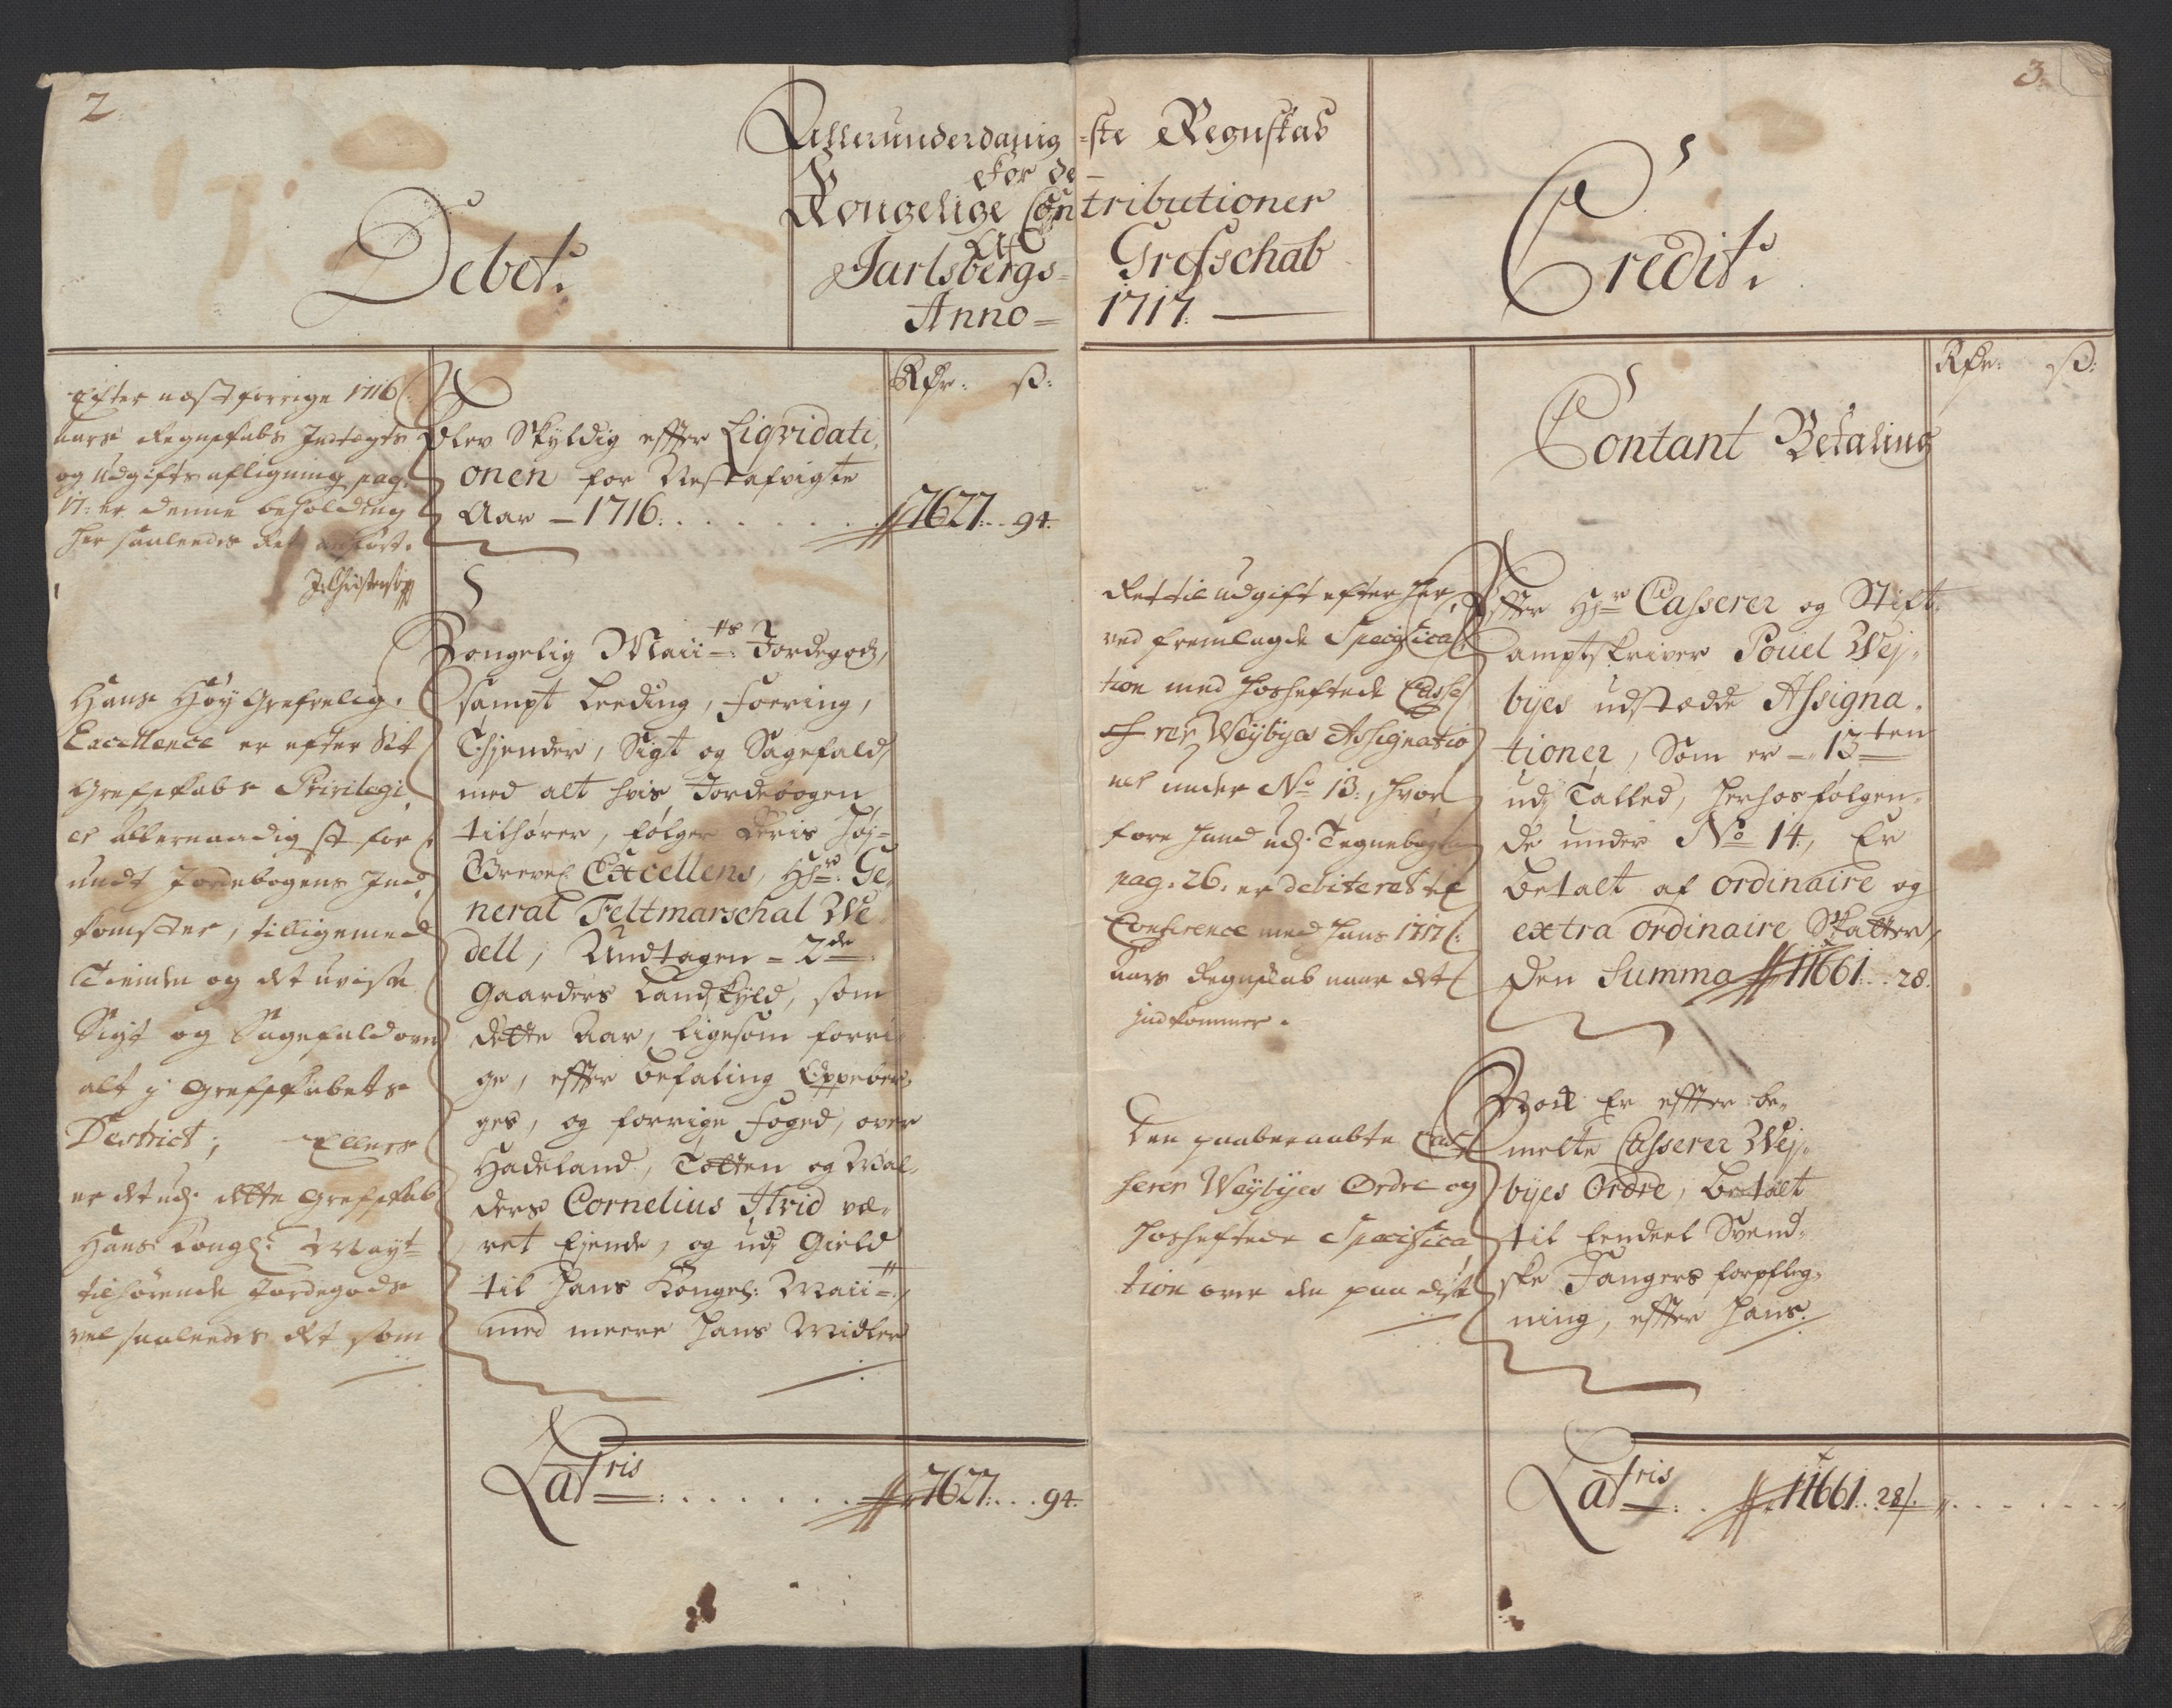 2.
Allerunderdanig
-ste Regnskab
for de
Kongelige Contributioner
Af
Jarlsbergs- Grefschab
Anno- 1717.
Debet.
Rdr. ß:
Efter næst forrige 1716
Aars Regnskabs Indtægts
og udgifts afligning pag.
17: er denne beholding
her saaledes Ret anført.
Blev Skyldig effter Liqvidati,
onen for Nestafvigte
Aar - 1716. . . . . . . 7627. . 94.
Hans Høy Grefvelig.
Excellence er efter Sit
Grefskabs Privilegi
er allernaadigst for
undt Jordebogens Ind
komster, tilligemed
Tienden og det uvisse
Sigt og Sagefald over
alt j Grefskabets
District; Ellers
er det udj dette Grefskab
Hans Kongl: Mayt-
tilhørende Jordegods
vel saaledes det som
Kongelig Maii-ts Jordegods,
sampt Leeding, Foering,
Thjender, Sigt og Sagefald,
med alt hvis Jordebogen
tilhører, følger Deris Høj-
Grevel Excellens, Hr. Ge,
neral Feltmarschal We
dell, Undtagen - 2de
Gaarders Landskyld, som
dette Aar, ligesom forri
ge, effter befaling Oppeber,
ges, og forrige Foged, over
Hadeland, Totten og Wal,
ders Cornelius Hvid væ,
ret Ejende, og udj Gield
til Hans Kongel: Maii-tt,
med meere Hans Midler
Latris . . . . . . 7627. . . 94.
3.
Credit.
Rdr. ß:
Contant Betaling
Ret til udgift efter her
ved fremlagde Specifica
tion med hosheftede Casse
rer Weybyes Assignatio
ner under No 13., hvor
fore hand udj Tegnebogen
pag. 26. er debiteret til
Conference med hans 1717
aars Regnskab naar det
indkommer.
Effter Hr Casserer og Stift,
amptskriver Pouel Wej,
byes udstædde Assigna,
tioner, Som er - 13ten
udj Talled, herhos følgen,
de under No 14., Er
betalt af ordinaire og
extra ordinaire Skatter,
Den Summa 11661. . 28.
Den paaberaabte Cas
serer Weybyes Ordre og
hosheftede Specifica
tion over den paa disse
Noch Er effter be,
melte Casserer Wej,
byes Ordre, betalt
til Eendeel Svend,
ske Fangers forpfleg,
ning, effter hans.
Latris . . 11661. . 28